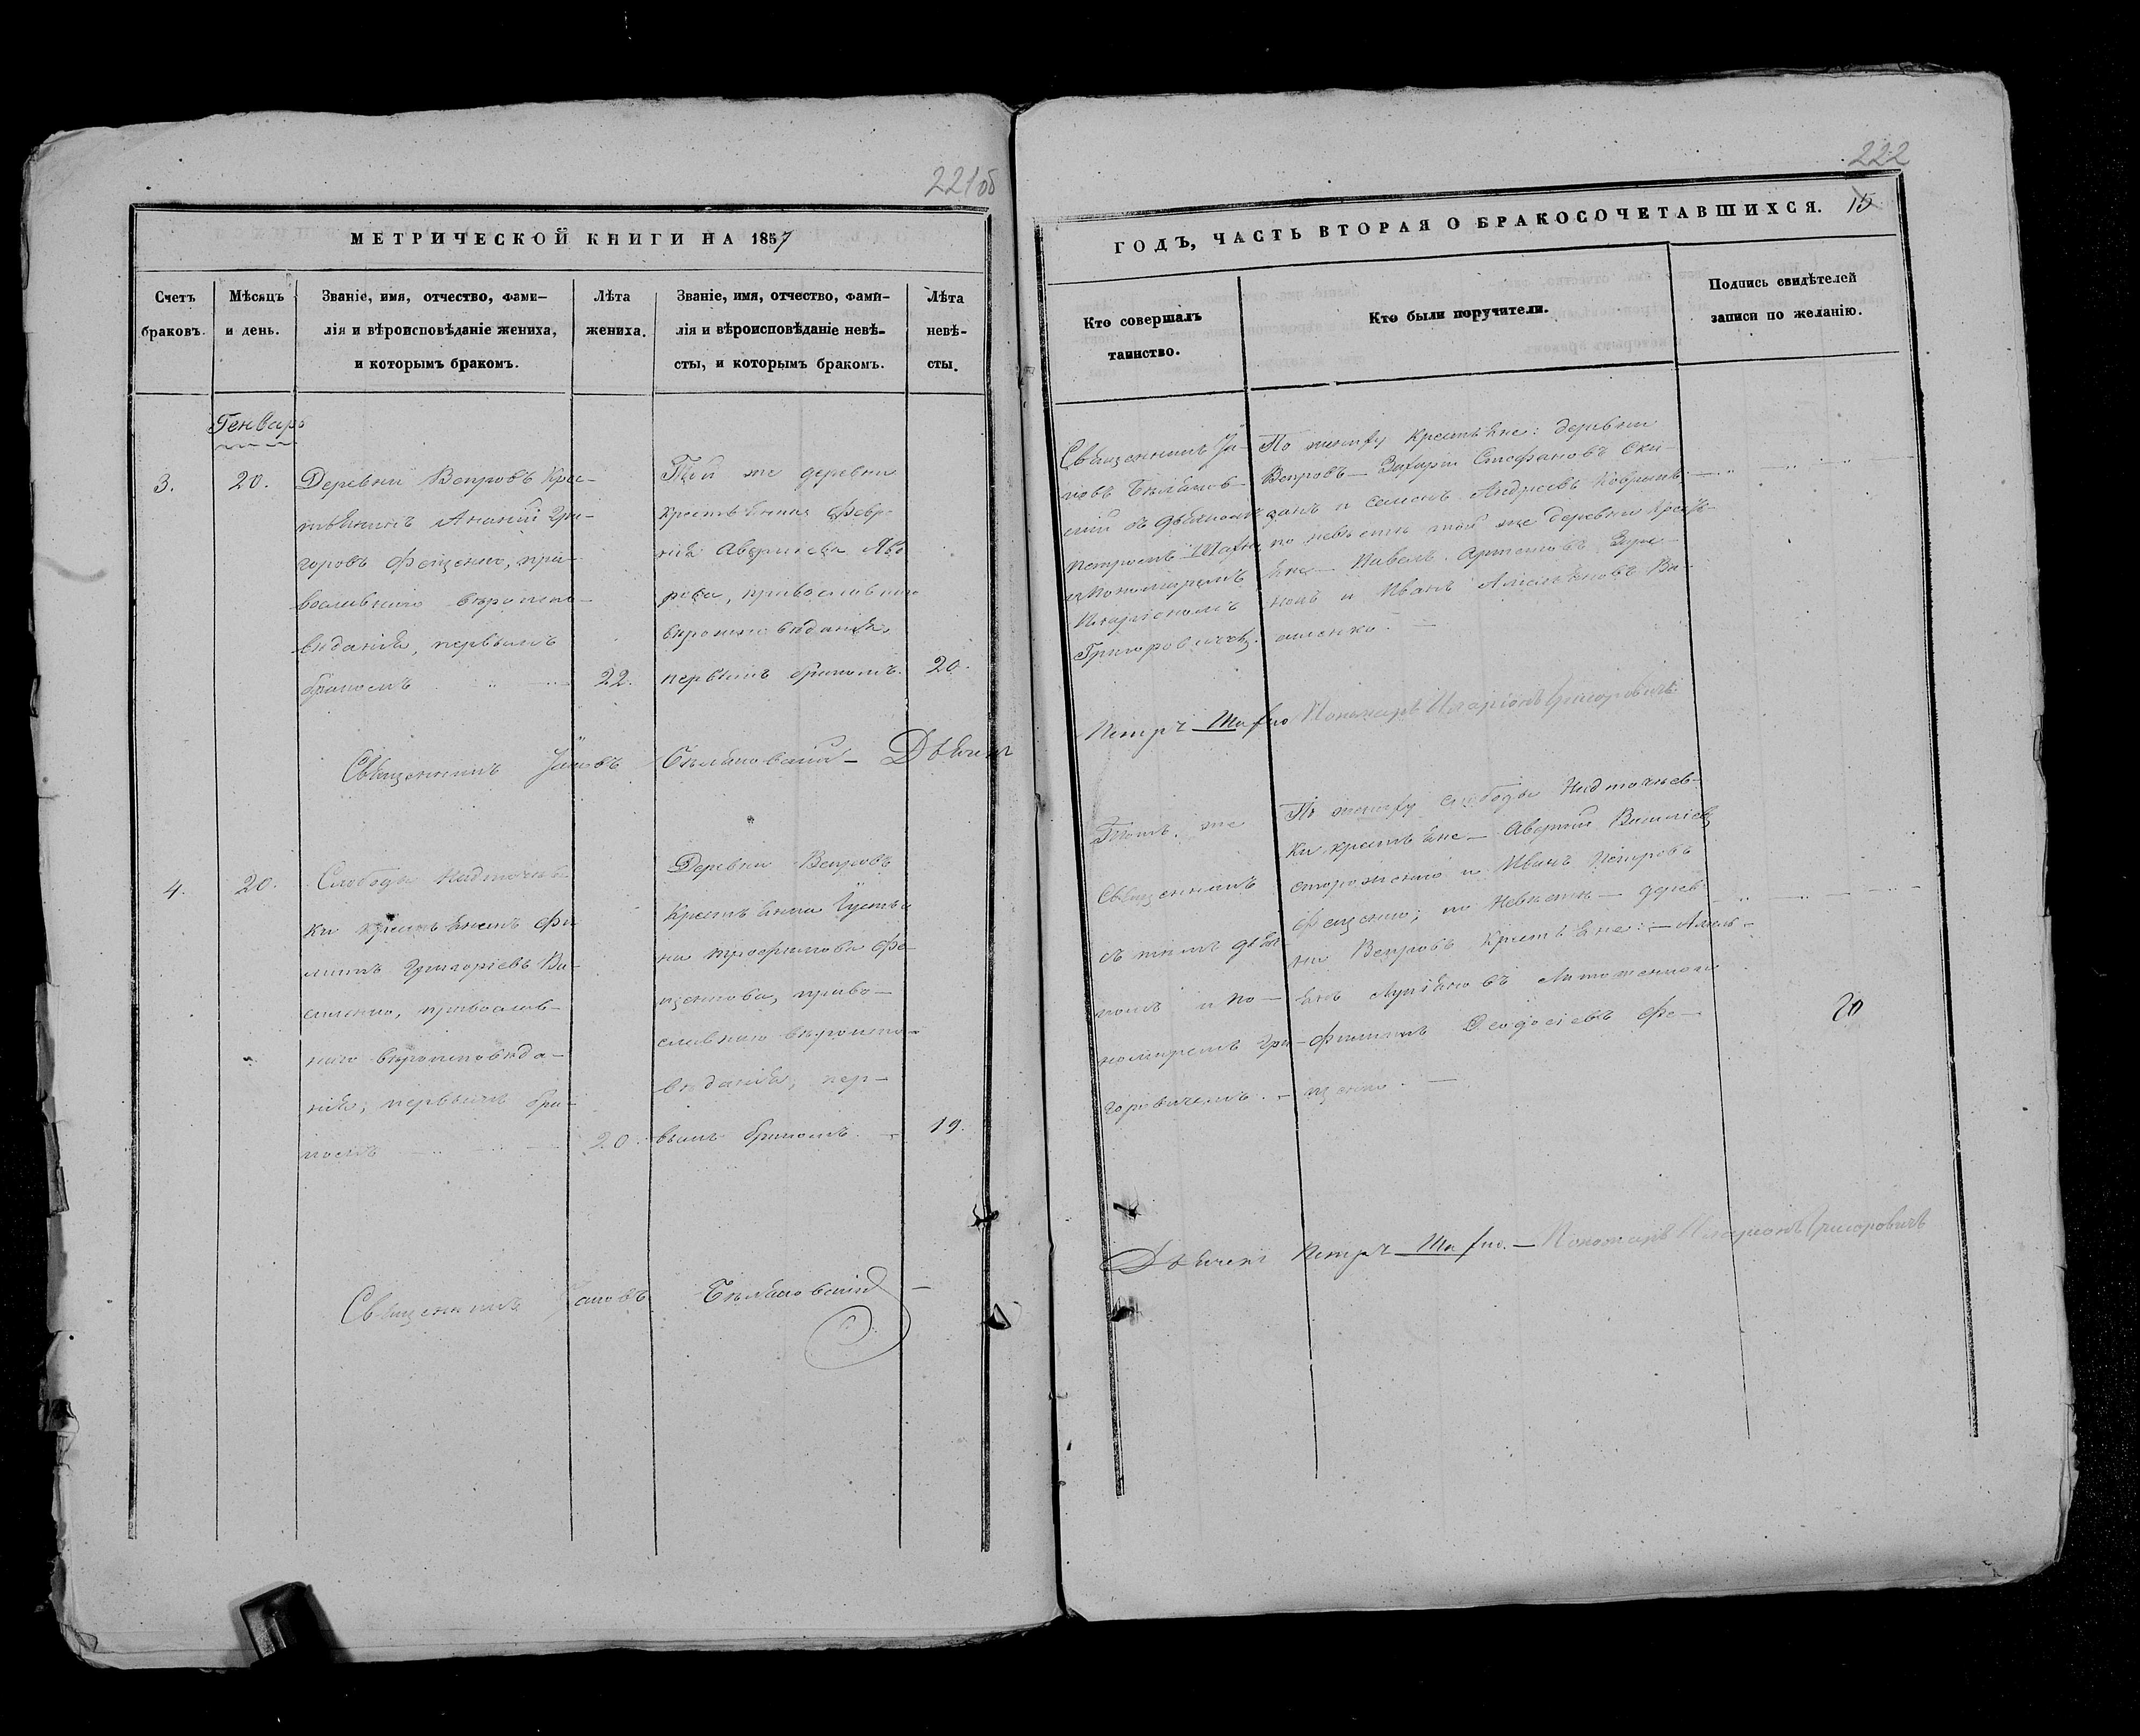 221об
МЕТРИЧЕСКОЙ КНИГИ НА 1857
Счетъ
браковъ.
Мѣсяцъ
и день.
Званіе, имя, отчество, фами-
лія и вѣроисповѣданіе жениха,
и которымъ бракомъ.
Лѣта
жениха.
Званіе, имя, отчество, фами-
лія и вѣроисповѣданіе невѣ-
сты, и которымъ бракомъ.
Лѣта
невѣ-
сты.
Генварь
3.
20.
Деревни Вепровъ Кре-
стьянинъ Ананій Гри-
горовъ Фещенко, пра-
вославнаго вѣроиспо-
вѣданія, первымъ
бракомъ
22.
Той же деревни
крестьянка Февро-
нія
православнаго
вѣроисповѣданія,
первымъ бракомъ.
20.
Священникъ Іаковъ Дьячекъ
4.
20.
Слободы
ки крестьянинъ Фи-
липъ Григоріевъ Ва-
силенко, православ-
наго вѣроисповѣда-
нія, первымъ бра-
комъ
20.
Деревни Вепровъ
Крестьянка Іусти-
на Трофимова Фе-
щенкова, право-
славнаго вѣроиспо-
вѣданія, пер-
вымъ бракомъ.
19.
Священникъ Іаковъ
222
ГОДЪ, ЧАСТЬ ВТОРАЯ О БРАКОСОЧЕТАВШИХСЯ.
15
Кто совершалъ
таинство.
Кто были поручители.
Подпись свидѣтелей
записи по желанію.
Священникъ Іа-
ковъ
скій съ дьячкомъ
Петромъ
и Пономаремъ
Иларіономъ
Григоровичемъ.
По жениху Крестьяне: деревни
Вепровъ — Захарій Стефановъ
и Семенъ Андреевъ
по невѣстѣ той же деревни Кресть-
яне — Павелъ Артемовъ
и Иванъ Ва-
силенко. —
Петръ Пономарь Иларіонъ Григоровичъ
Тотъ же
Священникъ
съ тѣмъ дьяч-
комъ и По-
номаремъ Гри-
горовичемъ. —
По жениху слободы
ки крестьяне — Аверкій Василіевъ
и Иванъ Петровъ
Фещенко; по Невѣстѣ — дерев-
ни Вепровъ Крестьяне: —
Филипъ Ѳеодосіевъ Фе-
щенко. —
Дьячекъ Петръ — Пономарь Иларіонъ Григоровичъ